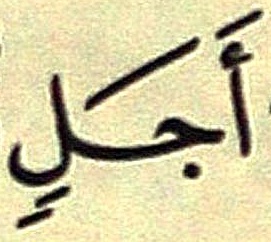 أَجَلٍ